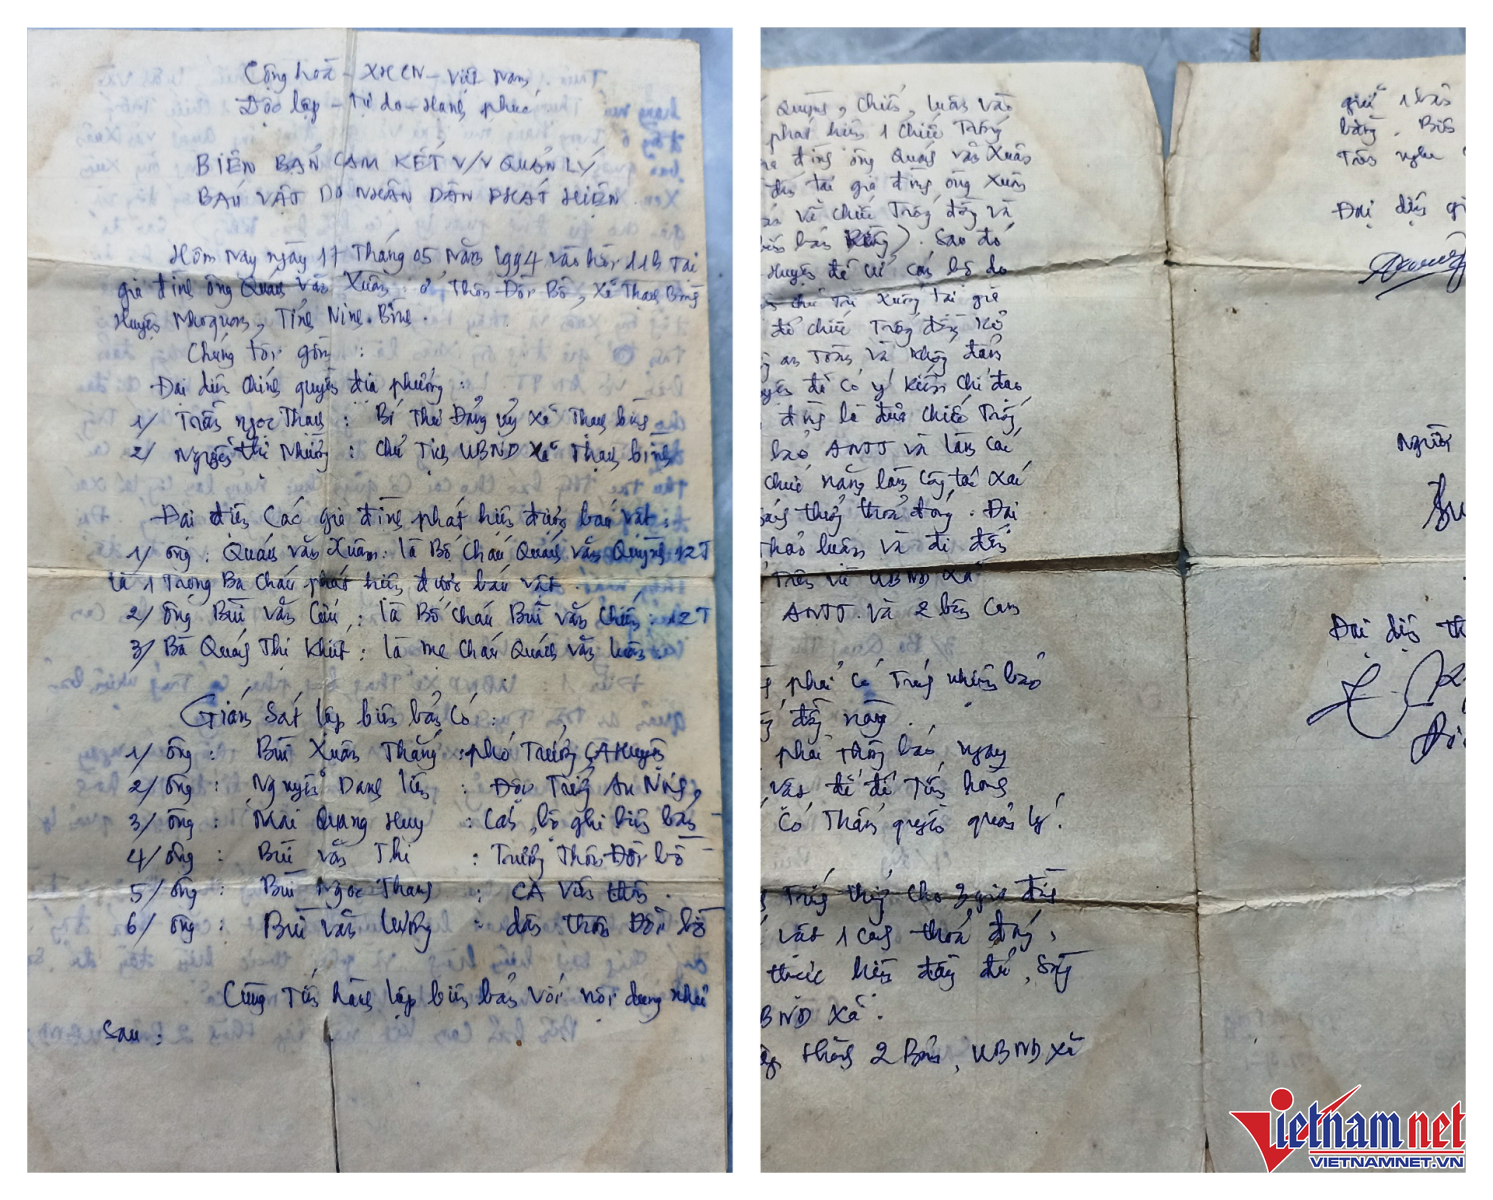 Cộng hoà - XHCN - Việt Nam
Độc lập - Tự do - Hạnh phúc
BIÊN BẢN CAM KẾT V/V QUẢN LÝ
BÁU VẬT DO NHÂN DÂN PHÁT HIỆN
Hôm nay ngày 17 tháng 05 năm 1994 vào hồi 11h Tại
gia đình ông Quách Văn Xuân ở thôn Đồi Bồ, xã Thạch Bình
Huyện Nho quan, Tỉnh Ninh Bình.
Chúng tôi gồm:
Đại diện chính quyền địa phương:
1/ Trần ngọc Thanh: Bí thư Đảng uỷ xã Thạch bình
2/ Nguyễn thị Nhường: Chủ Tịch UBND xã Thạch bình
Đại diện các gia đình phát hiện được báu vật:
1/ ông: Quách văn Xuân: là Bố cháu Quách văn Quỳnh 12T
là 1 trong Ba cháu phát hiện được báu vật
2/ ông Bùi văn: là Bố cháu Bùi văn Chiến: 12T
3/ Bà Quách Thị Khiết: là mẹ cháu Quách văn luân.
Giám sát lập biên bản có:
1/ ông: Bùi Xuân Thắng: phó Trưởng CA Huyện
2/ ông: Nguyễn Dang: Đội Trưởng An Ninh,
3/ ông: Mai Quang Huy: Cán bộ ghi biên bản
4/ ông: Bùi văn Thi: Trưởng Thôn Đồi bồ
5/ ông: Bùi Ngọc Thanh: CA viên thôn.
6/ ông: Bùi văn Lượng: dân thôn Đồi bồ
Cùng Tiến hành lập biên bản với nội dung như
sau:
Quỳnh, Chiến, luân vào
phát hiện 1 chiếc Trống
gia đình ông Quách văn Xuân
tại gia đình ông Xuân
về chiếc Trống đồng và
biên bản Riêng). Sau đó
Huyện đề cử cán bộ do
chủ Trì xuống tại gia
để chiếc Trống đồng
an Toàn và không đảm
để có ý kiến chỉ đạo
đồng là đưa chiếc Trống
bảo ANTT và làm các
chức năng làm công tác xác
thưởng thoả đáng. Đại
Thảo luận và đi đến
Trên và UBND xã
ANTT và 2 bên cam
phải có Trách nhiệm bảo
đồng này.
phải thông báo ngay
vấn đề để tiến hành
có thẩm quyền quản lý.
thưởng cho 3 gia đình
vật 1 cách thoả đáng,
thực hiện đầy đủ,
UBND xã.
thành 2 Bản, UBND xã
giữ 1 bản
bằng. Biên
Trên nghe
Đại diện gia
Người
Đại diện
vietnamnet
VIETNAMNET.VN